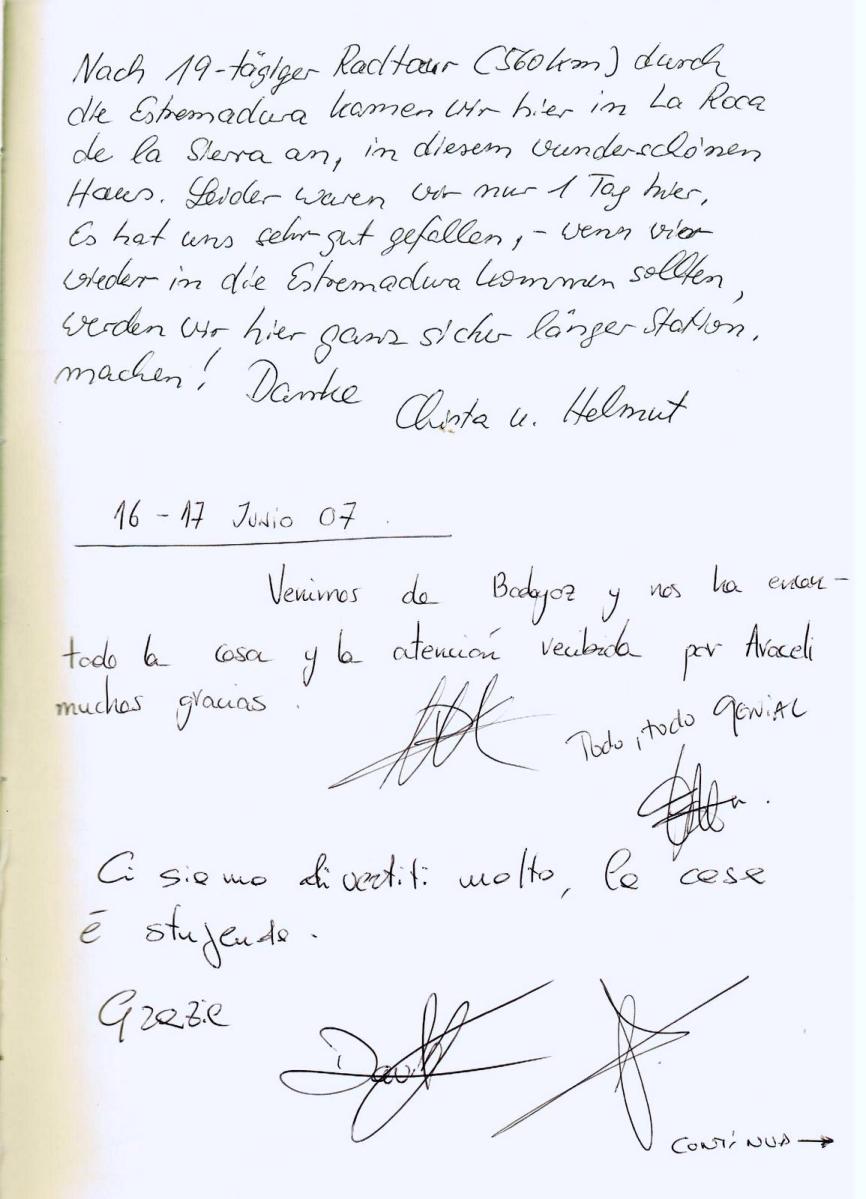 Nach 19-tägiger Radtour (560 km) durch
die Estremadura kamen wir hier in La Roca
de la Sierra an, in diesem wunderschönen
Haus. Leider waren wir nur 1 Tag hier,
Es hat uns sehr gut gefallen, - wenn wir
wieder in die Estremadura kommen sollten,
werden wir hier ganz sicher länger Station.
machen! Danke
Christa u. Helmut
16 - 17 Junio 07.
Venimos de Badajoz y nos ha encan-
tado la casa y la atención recibida por Araceli
muchas gracias.
Todo, todo GENIAL
Ci siamo divertiti molto, la casa
é stupenda.
Grazie
David
CONTINUA →